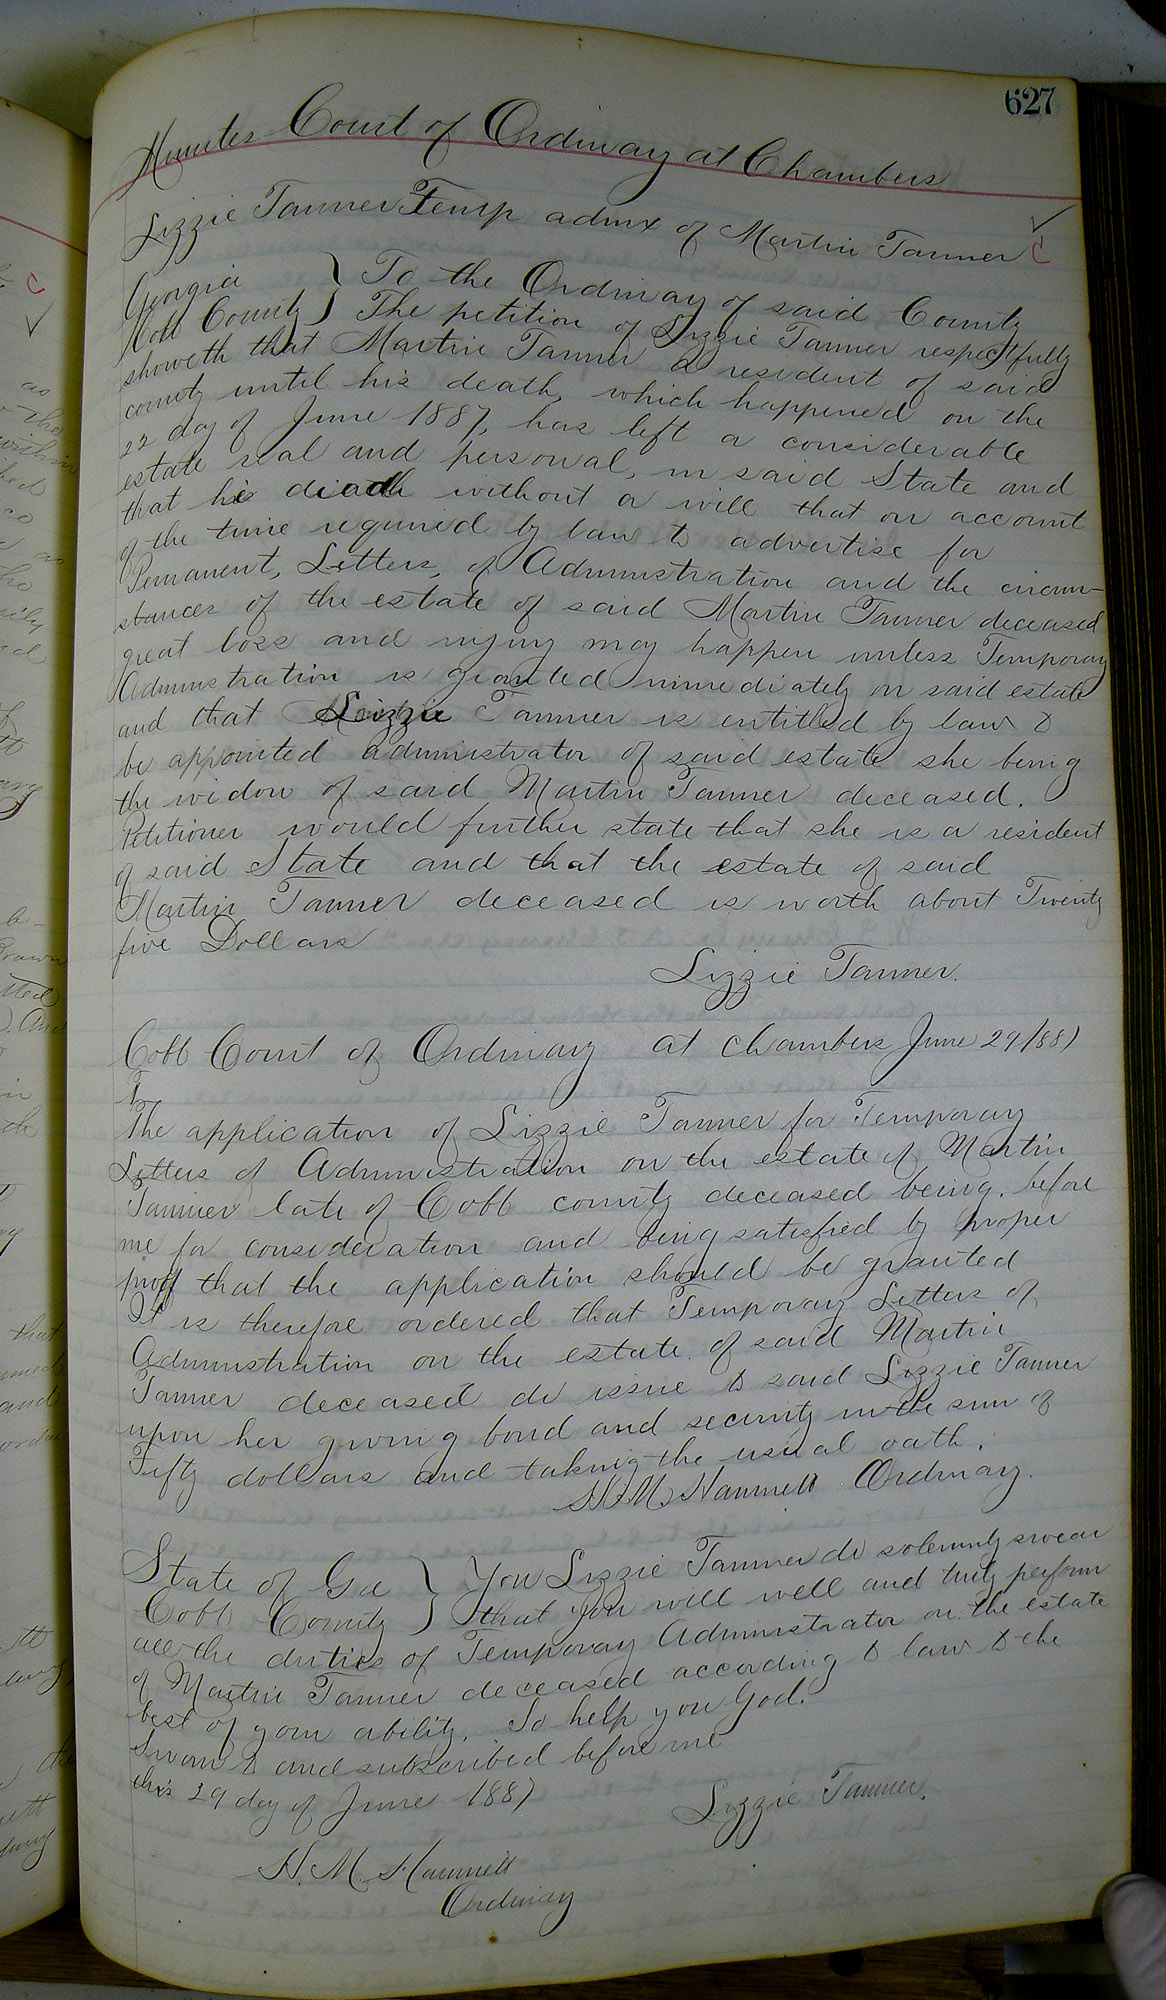 627
Minutes Court of Ordinary at Chambers
Lizzie Tanner Temp admx of Martin Tanner ✓ C
Georgia } To the Ordinary of said County
Cobb County } The petition of Lizzie Tanner respectfully
showeth that Martin Tanner a resident of said
county until his death, which happened on the
22 day of June 1887, has left a considerable
estate real and personal, in said State and
that he died without a will that on account
of the time required by law to advertise for
Permanent, Letters, of Administration and the circum-
stances of the estate of said Martin Tanner deceased
great loss and injury may happen unless Temporary
Administration is granted immediately on said estate
and that Lizzie Tanner is entitled by law to
be appointed administrator of said estate she being
the widow of said Martin Tanner deceased.
Petitioner would further state that she is a resident
of said State and that the estate of said
Martin Tanner deceased is worth about Twenty
five Dollars
Lizzie Tanner.
Cobb Court of Ordinary at Chambers June 29/887
The application of Lizzie Tanner for Temporary
Letters of Administration on the estate of Martin
Tanner late of Cobb county deceased being, before
me for consideration and being satisfied by proper
proof that the application should be granted
It is therefore ordered that Temporary Letters of
Administration on the estate of said Martin
Tanner deceased do issue to said Lizzie Tanner
upon her giving bond and security in the sum of
Fifty dollars and taking the usual oath.
H. M. Hammett Ordinary.
State of Ga } You Lizzie Tanner do solemnly swear
Cobb County } that you will well and truly perform
all the duties of Temporary Administrator on the estate
of Martin Tanner deceased according to law to the
best of your ability. So help you God.
Sworn to and subscribed before me
this 29 day of June 1887
Lizzie Tanner.
H. M. Hammett
Ordinary